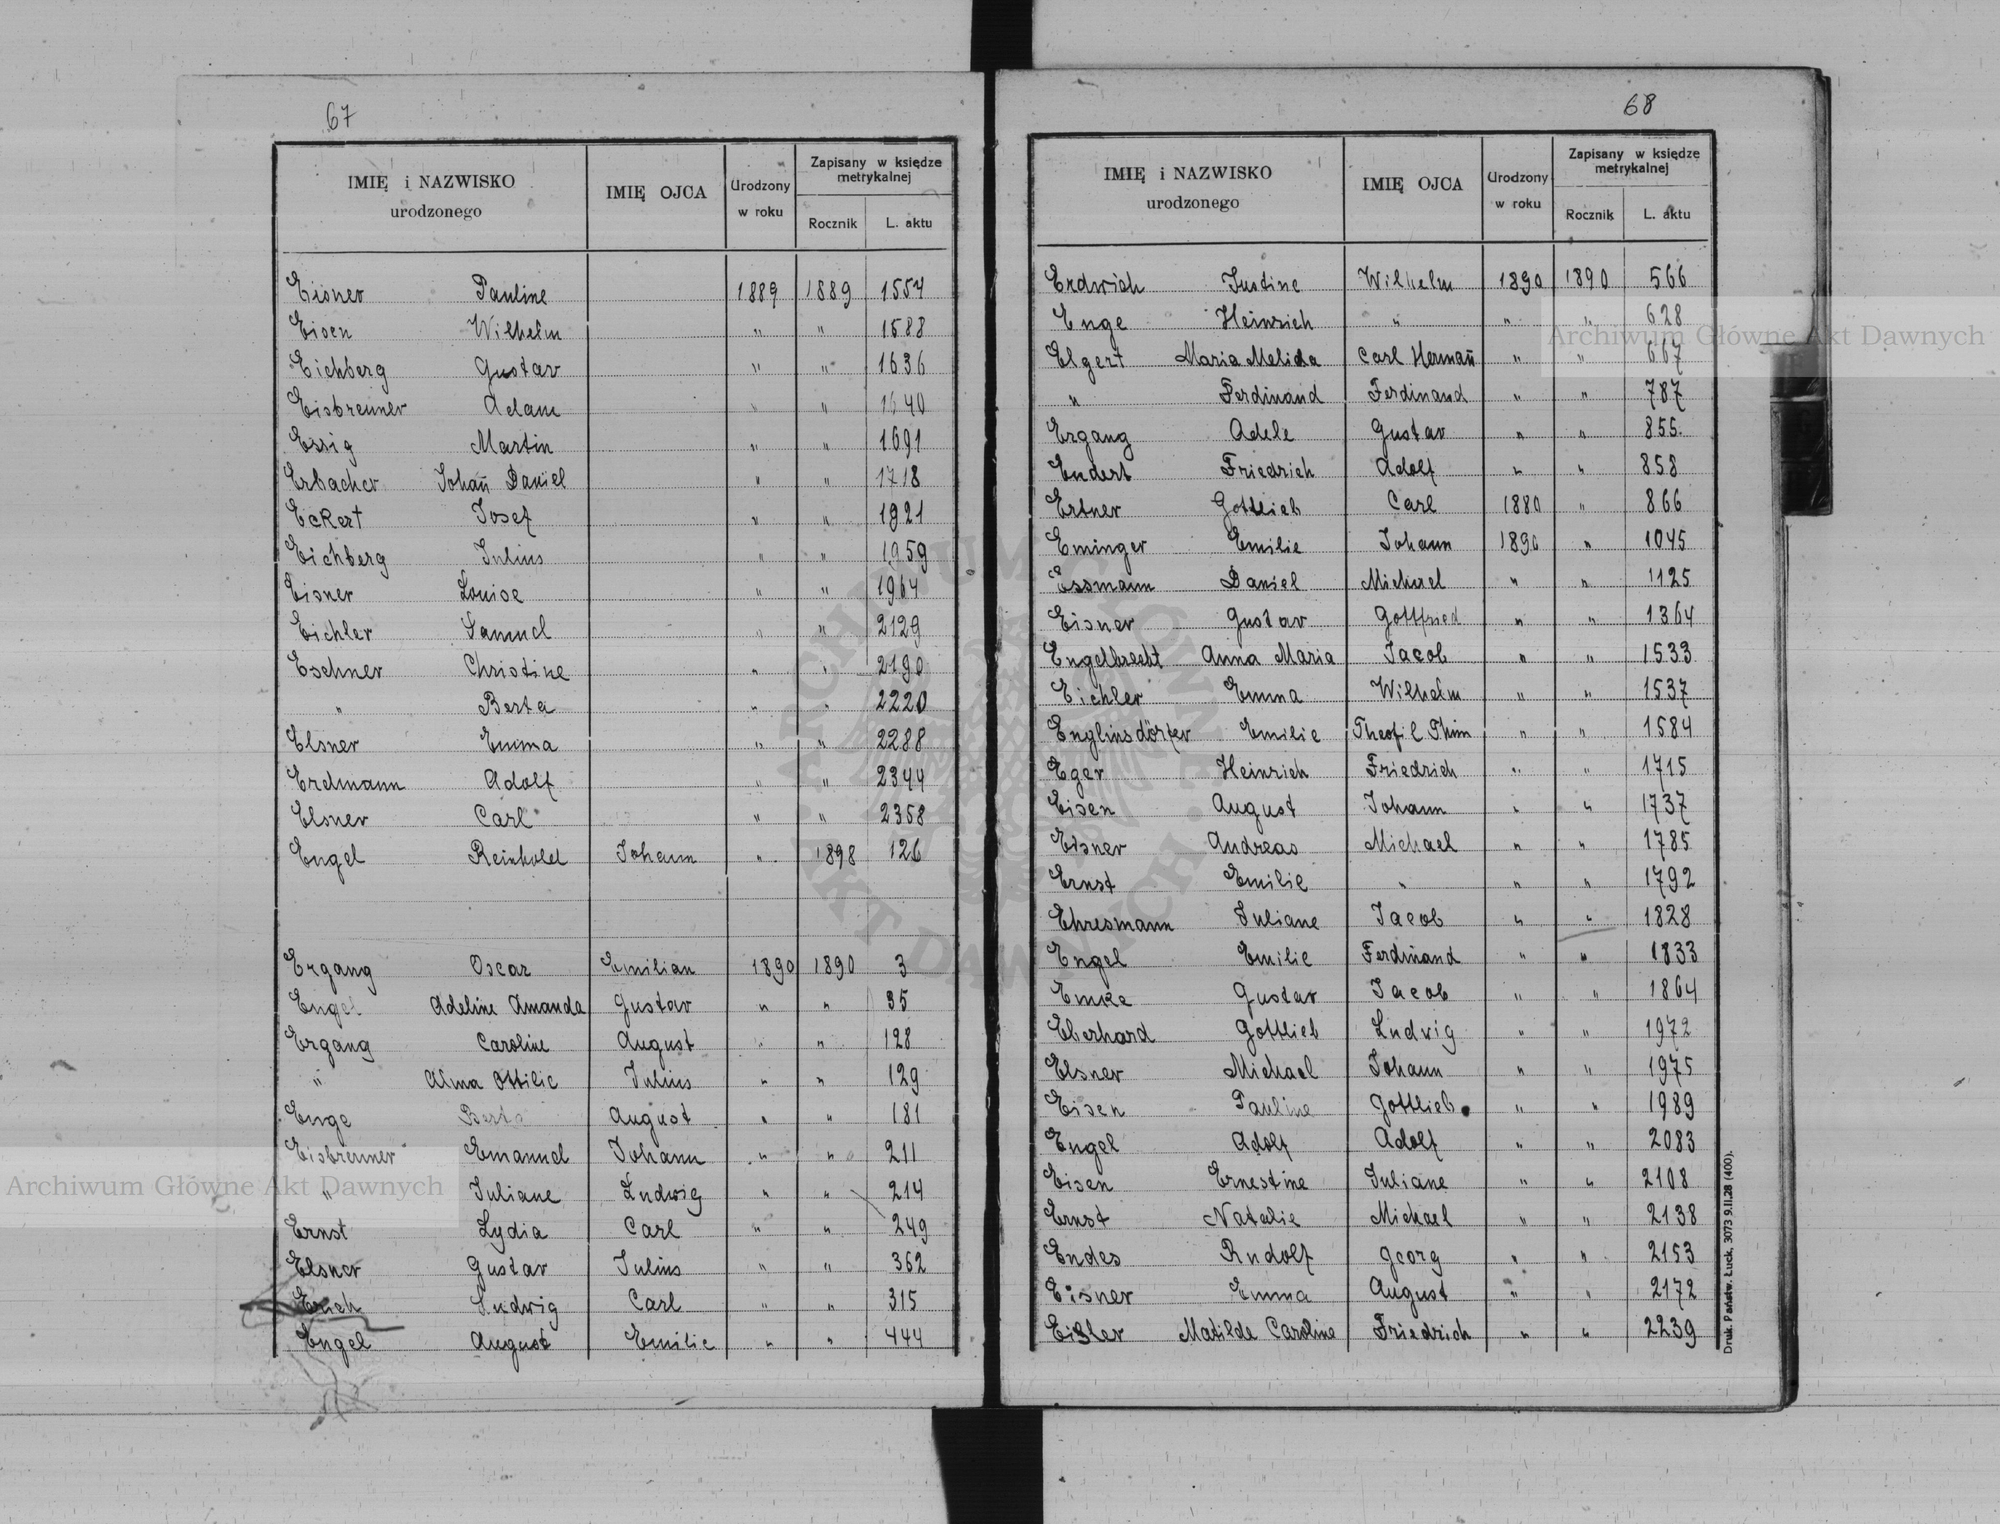 67
IMIĘ i NAZWISKO urodzonego IMIĘ OJCA Urodzony w roku Zapisany w księdze metrykalnej Rocznik L. aktu
Eisner Pauline 1889 1889 1554
Eisen Wilhelm " " 1588
Eichberg Gustav " " 1636
Eisbrenner Adam " " 1640
Essig Martin " " 1691
Erbacher Johañ Daniel " " 1718
Eckert Josef " " 1921
Eichberg Julius " " 1959
Eisner Louise " " 1964
Eichler Samuel " " 2129
Eschner Christine " " 2190
" Berta " " 2220
Elsner Emma " " 2288
Erdmann Adolf " " 2344
Elsner Carl " " 2358
Engel Reinhold Johann " 1898 126
Ergang Oscar Emilian 1890 1890 3
Engel Adeline Amanda Gustav " " 35
Ergang Caroline August " " 128
" Alma Ottilie Julius " " 129
Enge Berta August " " 181
Eisbrenner Emanuel Johann " " 211
" Juliane Ludwig " " 214
Ernst Lydia Carl " " 249
Elsner Gustav Julius " " 362
Erich Ludwig Carl " " 315
Engel August Emilie " " 444
68
IMIĘ i NAZWISKO urodzonego IMIĘ OJCA Urodzony w roku Zapisany w księdze metrykalnej Rocznik L. aktu
Erdwich Justine Wilhelm 1890 1890 566
Enge Heinrich " " " 628
Elgert Maria Melida Carl Hermañ " " 667
" Ferdinand Ferdinand " " 787
Ergang Adele Gustav " " 855
Endert Friedrich Adolf " " 858
Ertner Gottlieb Carl 1880 " 866
Eminger Emilie Johann 1890 " 1045
Essmann Daniel Michael " " 1125
Eisner Gustav Gottfried " " 1364
Engelbrecht Anna Maria Jacob " " 1533
Eichler Emma Wilhelm " " 1537
Englinsdörfer Emilie Theofil Thim " " 1584
Eger Heinrich Friedrich " " 1715
Eisen August Johann " " 1737
Eisner Andreas Michael " " 1785
Ernst Emilie " " " 1792
Ehresmann Juliane Jacob " " 1828
Engel Emilie Ferdinand " " 1833
Emke Gustav Jacob " " 1864
Eberhard Gottlieb Ludwig " " 1972
Elsner Michael Johann " " 1975
Eisen Pauline Gottlieb " " 1989
Engel Adolf Adolf " " 2083
Eisen Ernestine Juliane " " 2108
Ernst Natalie Michael " " 2138
Endes Rudolf Georg " " 2153
Eisner Emma August " " 2172
Eisler Matilde Caroline Friedrich " " 2239
Druk. Państw. Łuck. 3073 9.II.28 (400).
Archiwum Główne Akt Dawnych
Archiwum Główne Akt Dawnych
ARCHIWUM GŁÓWNE AKT DAWNYCH